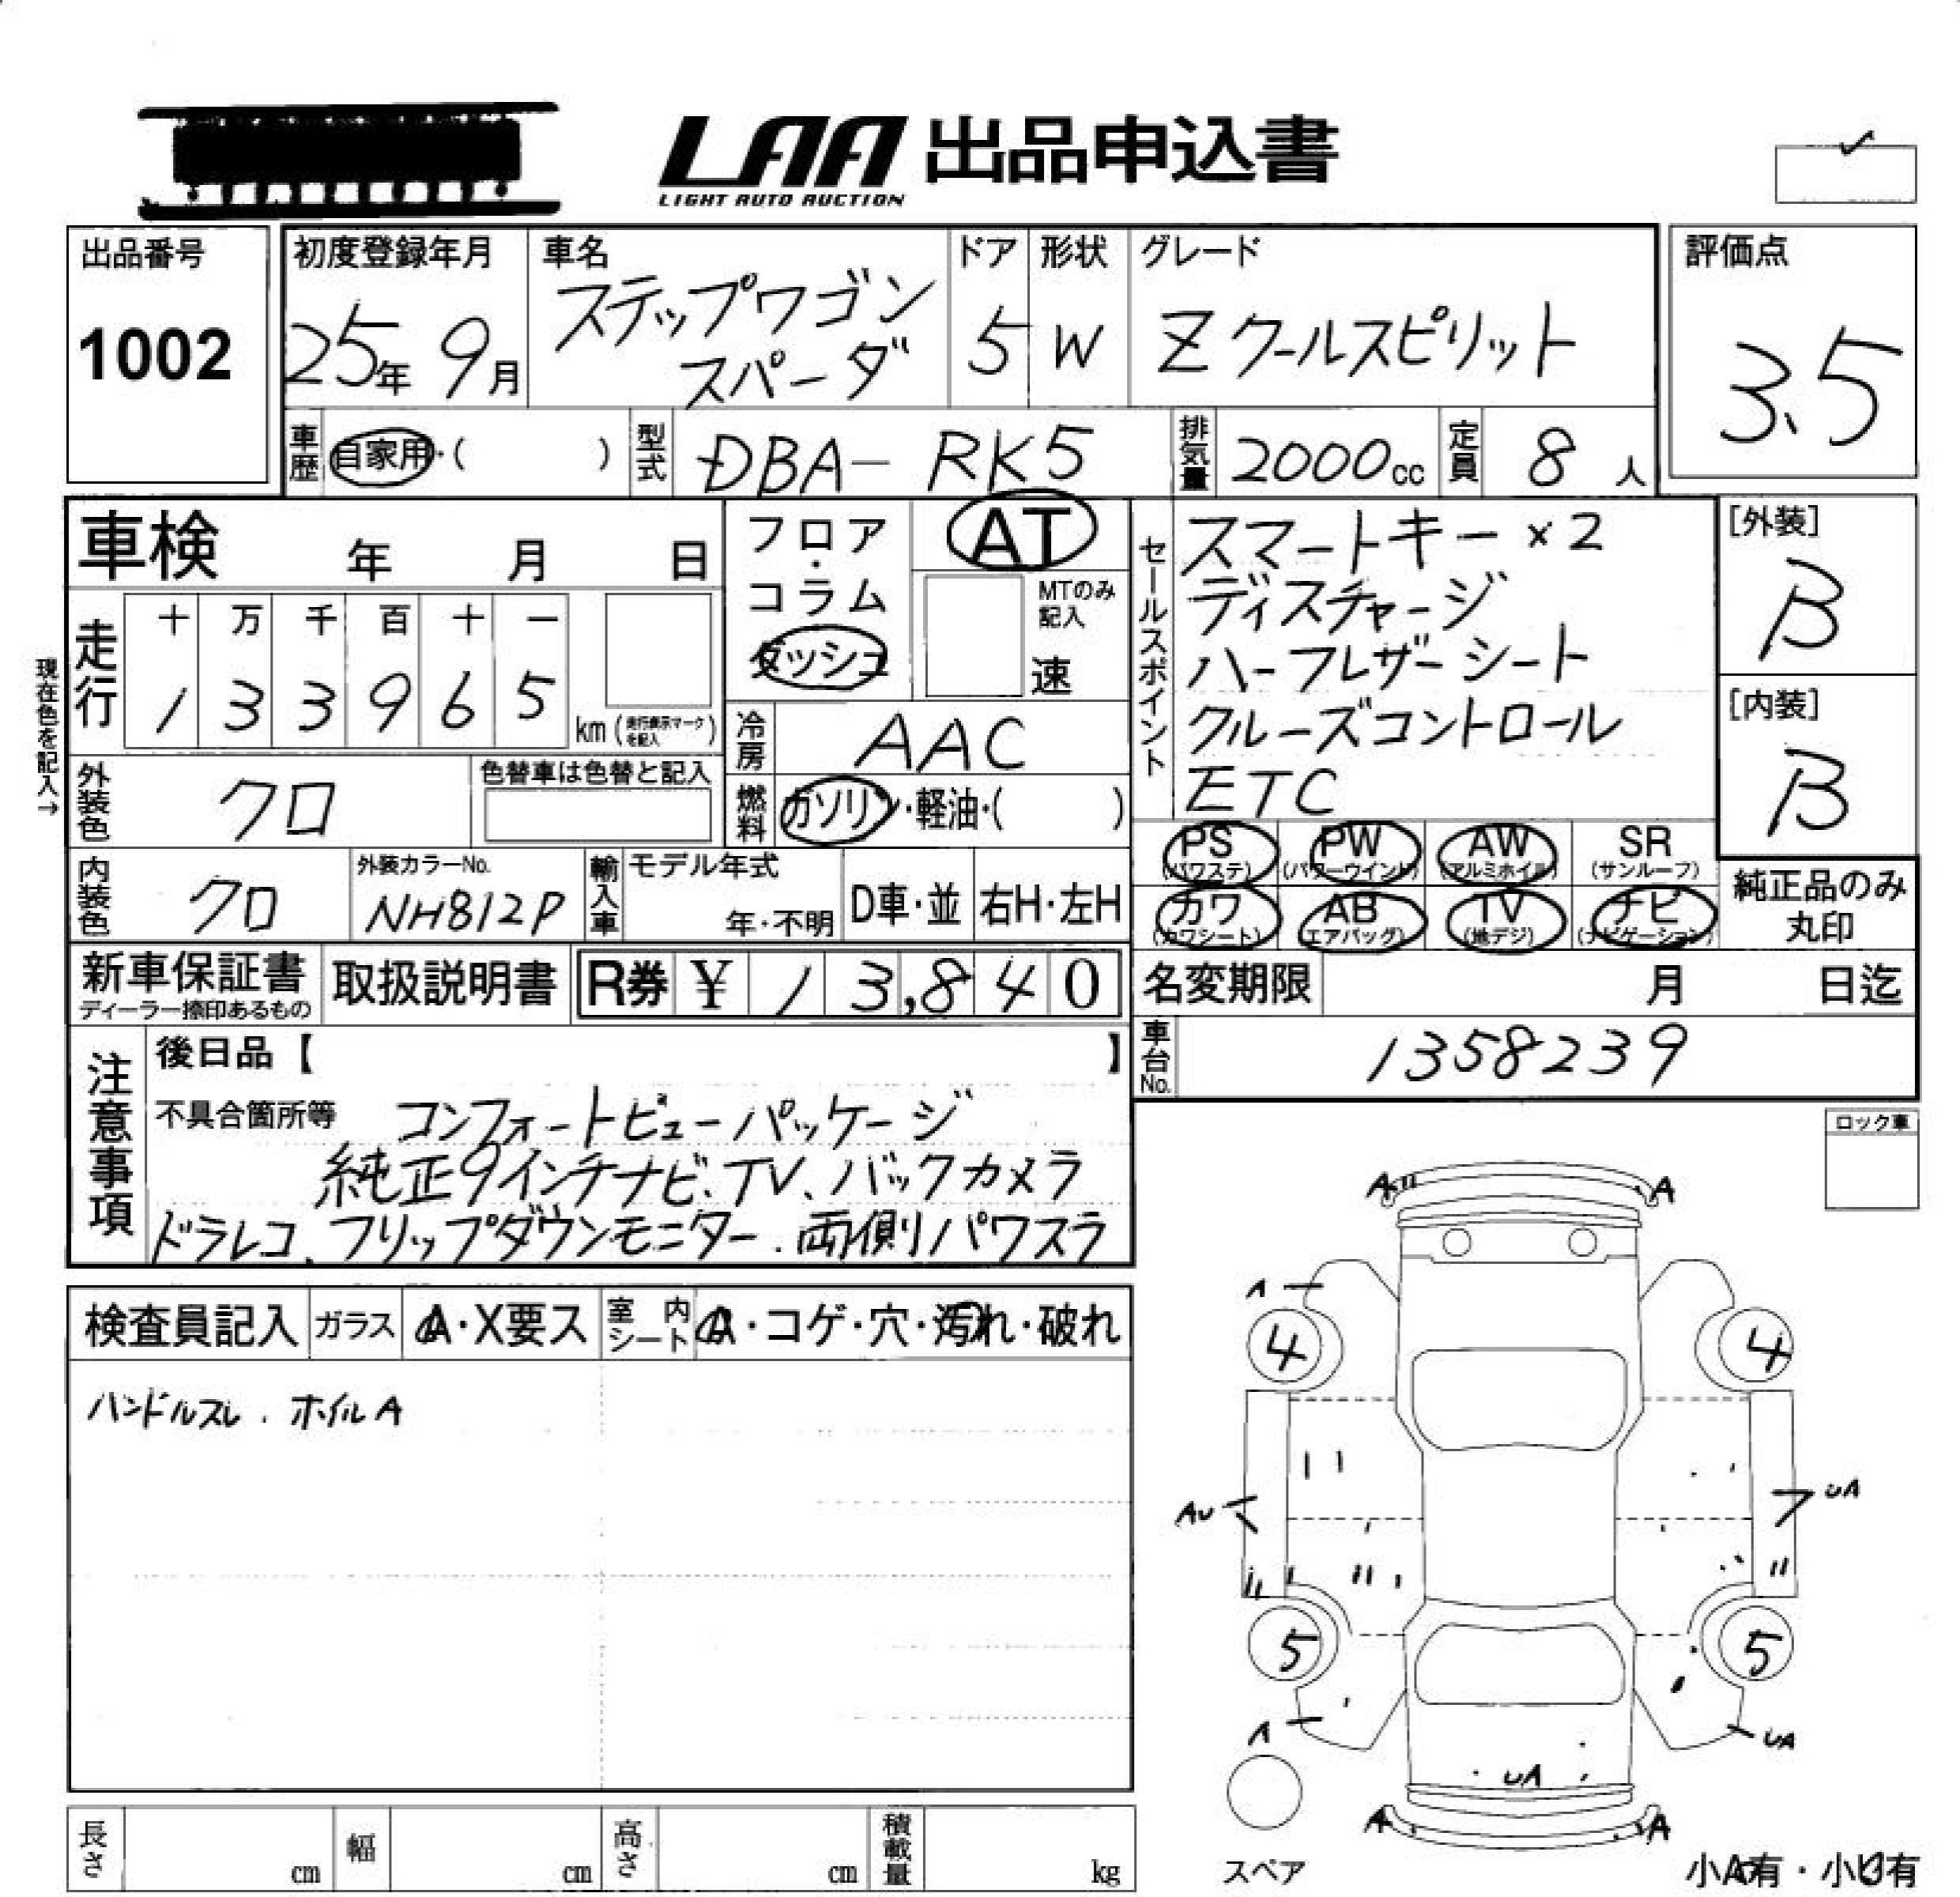 LAA 出品申込書
LIGHT AUTO AUCTION
出品番号
1002
初度登録年月
25年 9月
車名
ステップワゴン
スパーダ
ドア
5
形状
W
グレード
Z クールスピリット
評価点
3.5
車歴 自家用・( )
型式 DBA- RK5
排気量 2000cc
定員 8 人
車検 年 月 日
フロア・コラム
ダッシュ
AT
MTのみ記入
速
セールスポイント
スマートキー×2
ディスチャージ
ハーフレザーシート
クルーズコントロール
ETC
[外装]
B
[内装]
B
現在色を記入→
走行
十 万 千 百 十 一
1 3 3 9 6 5 km (走行表示マークを記入)
冷房 AAC
燃料 ガソリン・軽油・( )
外装色 クロ
色替車は色替と記入
内装色 クロ
外装カラーNo.
NH812P
輸入車
モデル年式
年・不明
D車・並
右H・左H
PS (パワステ)
PW (パワーウインド)
AW (アルミホイル)
SR (サンルーフ)
カワ (カワシート)
AB (エアバッグ)
TV (地デジ)
ナビ (ナビゲーション)
純正品のみ
丸印
新車保証書
ディーラー捺印あるもの
取扱説明書
R券 ¥ 13,840
名変期限 月 日迄
車台No. 1358239
注意事項
後日品【 】
不具合箇所等 コンフォートビューパッケージ
純正9インチナビ、TV、バックカメラ
ドラレコ、フリップダウンモニター、両側パワスラ
ロック車
検査員記入 ガラス A・X要ス 室内シート コゲ・穴・汚れ・破れ
ハンドルスレ、ホイルA
A A
A
4 4
AU UA
5 5
A UA
UA
A A
スペア
小A有・小U有
長さ cm 幅 cm 高さ cm 積載量 kg